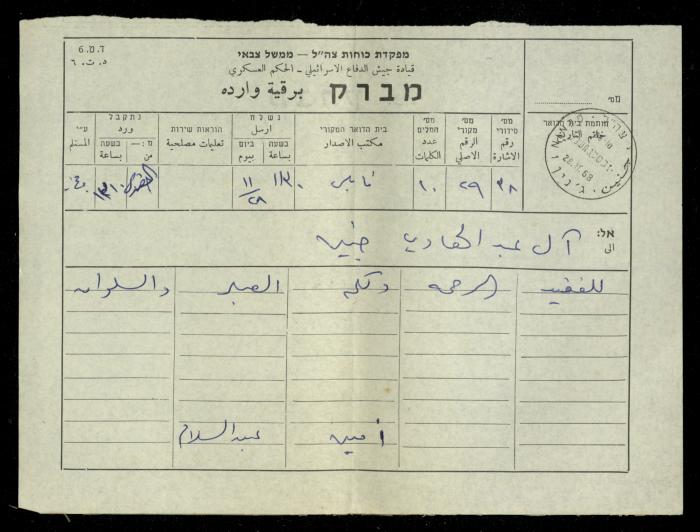 ד.מ.6
د.ت.٦
מפקדת כוחות צה"ל — ממשל צבאי
قيادة جيش الدفاع الاسرائيلي - الحكم العسكري
מברק برقية وارده
מס'
חותמת בית הדואר
خاتم
מס' סידורי
رقم الاشارة
מס' מקורי
الرقم الاصلي
מס' המלים
عدد الكلمات
בית הדואר המקורי
مكتب الاصدار
נשלח
ارسل
ביום
بيوم
בשעה
بساعة
הוראות שירות
تعليمات مصلحية
נתקבל
ورد
מ:—
من
בשעה
بساعة
ע"י
المستلم
٣٨ ٢٩ ١٠ نابلس ١١/٢٨
28.11.68
אל:
الى
آل عبد الهادي جنين
للفقيد الرحمه ولكم الصبر والسلوان
أمين عبد السلام